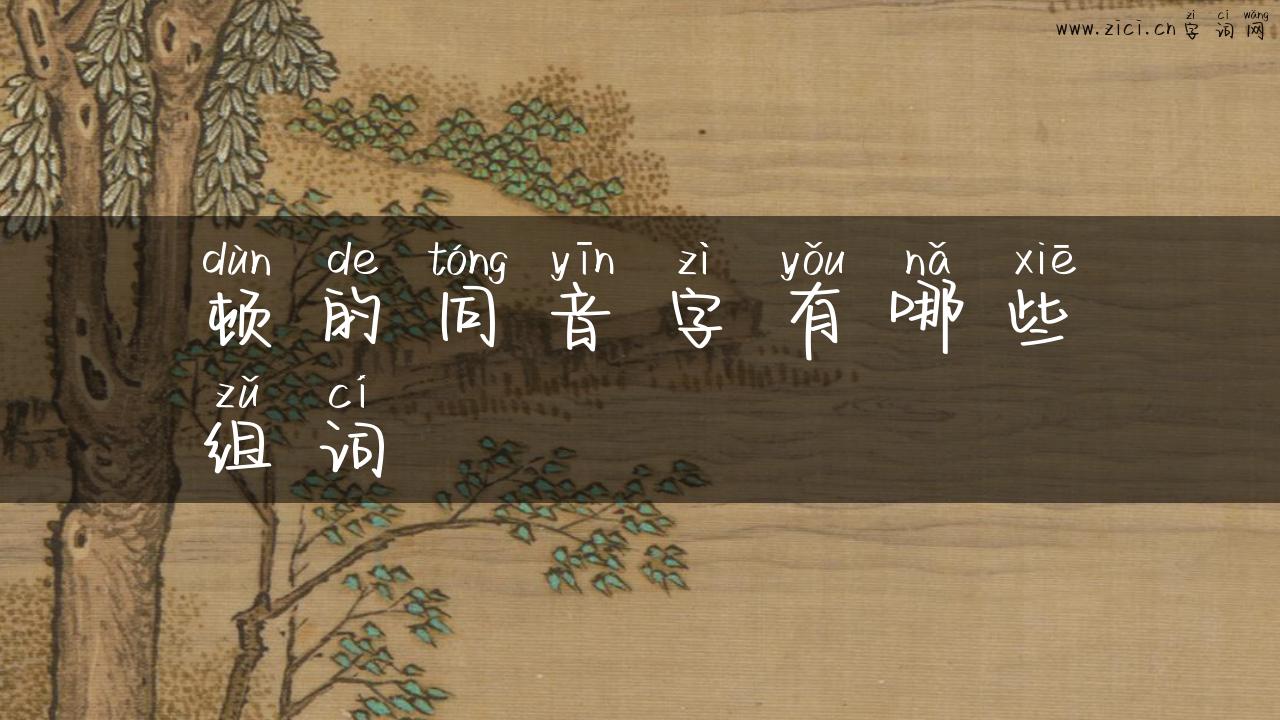 zì cí wǎng
www.zici.cn 字 词 网
dùn de tóng yīn zì yǒu nǎ xiē
顿 的 同 音 字 有 哪 些
zǔ cí
组 词